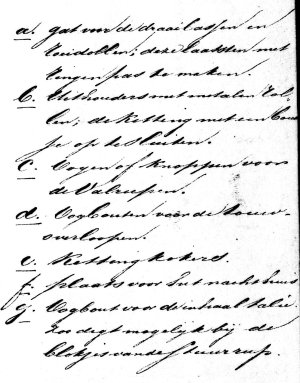 a. gat voor de draai assen en
roeidollen; deze laatsten met
ringen pas te maken.
b. Uithouders met metalen rol-
len; de Ketting met een bout-
je op te sluiten.
c. Oogen of Knoppen voor
de Valreepen.
d. Oogbouten voor de touw-
overloopen.
e. Ketting kokers.
f. plaats voor het nachthuis
g. Oogbout voor de inhaal talie
zoo digt mogelijk bij de
blokjes van de stuurreep.